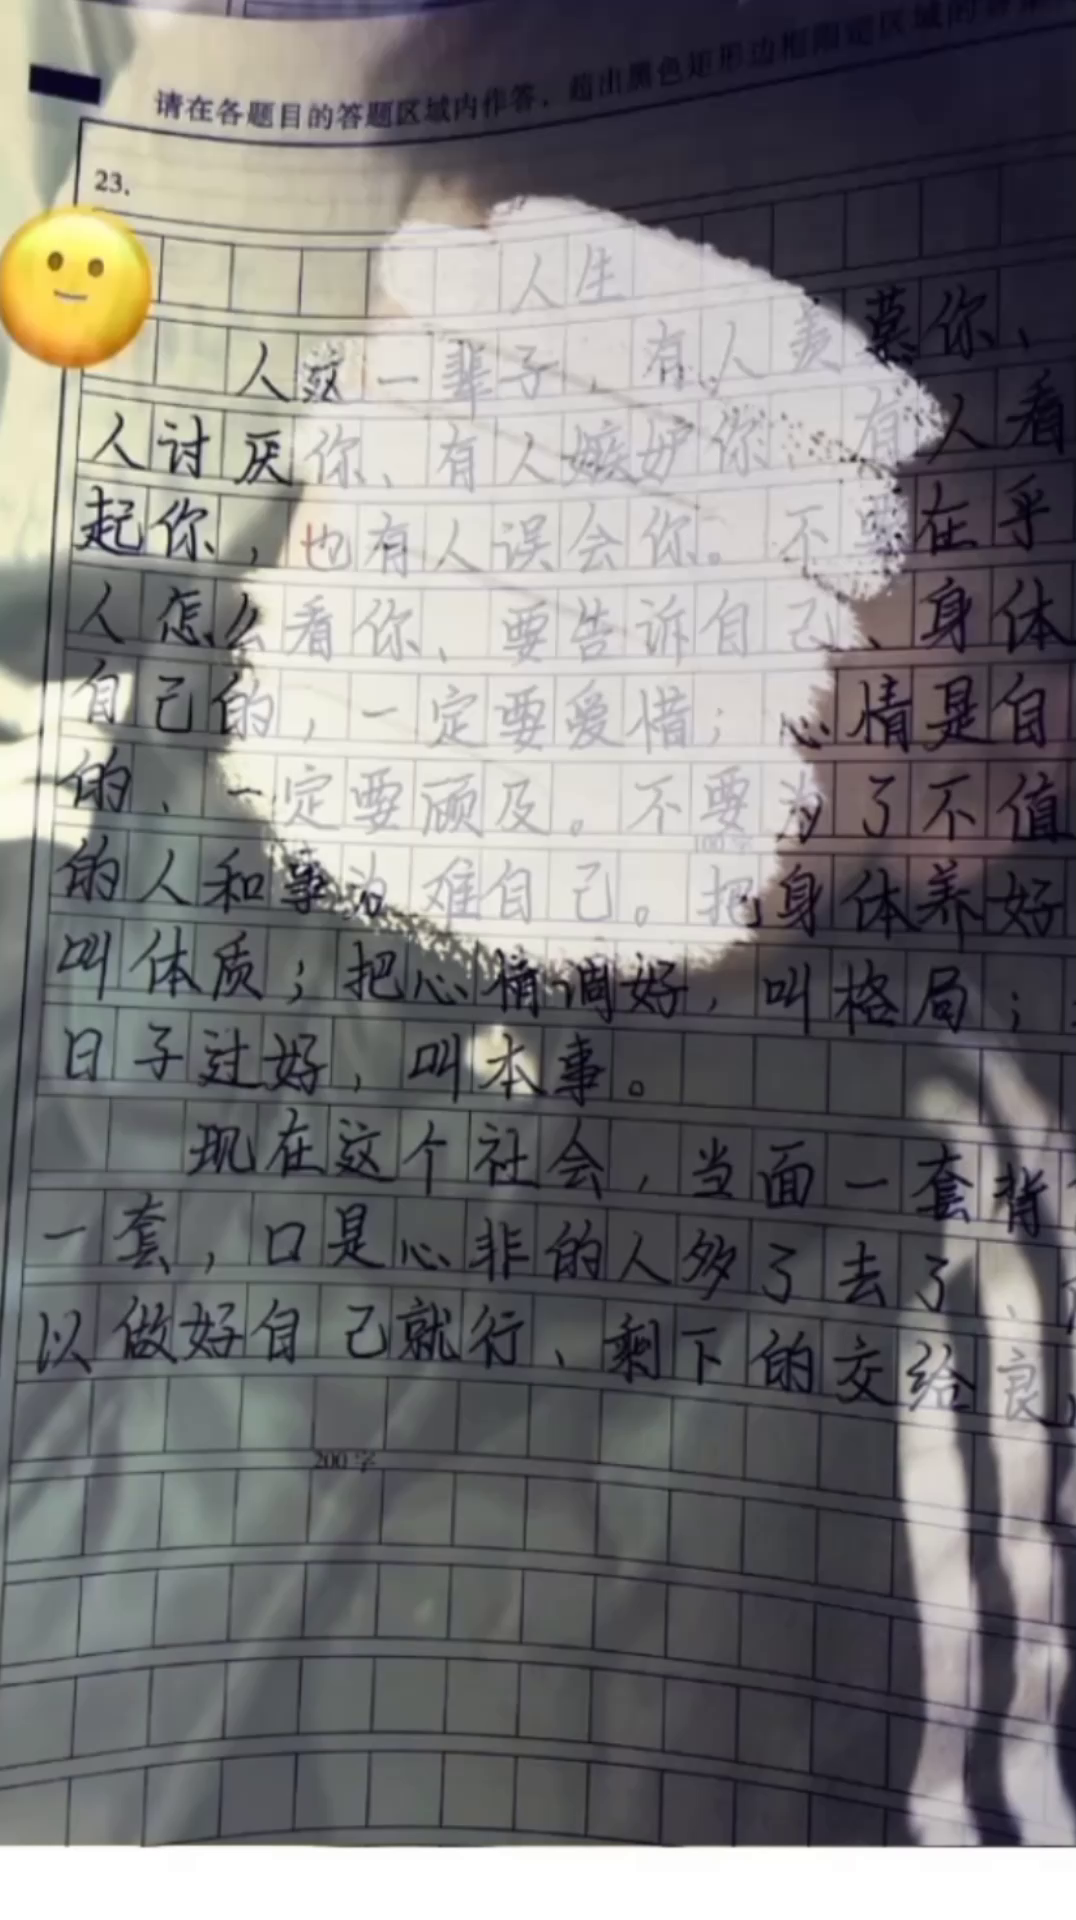 请在各题目的答题区域内作答，超出黑色矩形边框限定区域的答案
23.
人生
人这一辈子，有人羡慕你、
人讨厌你、有人嫉妒你、有人看
起你，也有人误会你。不要在乎
人怎么看你、要告诉自己、身体
自己的，一定要爱惜；心情是自
的、一定要顾及。不要为了不值
100字
的人和事为难自己。把身体养好
叫体质；把心情调好，叫格局；
日子过好，叫本事。
现在这个社会，当面一套背
一套，口是心非的人多了去了、
以做好自己就行、剩下的交给良
200字